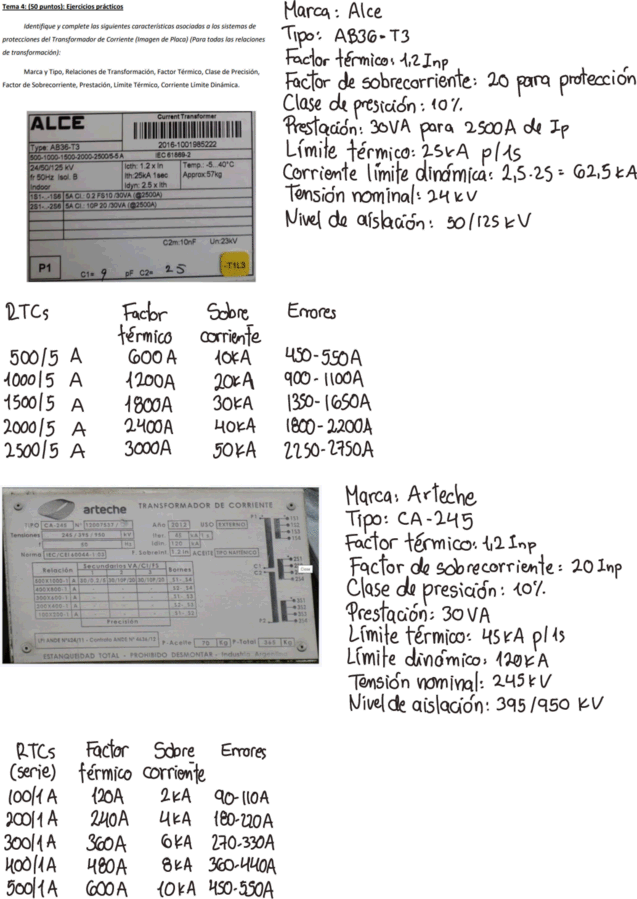 Tema 4: (50 puntos): Ejercicios prácticos
Identifique y complete las siguientes características asociadas a los sistemas de
protecciones del Transformador de Corriente (Imagen de Placa) (Para todas las relaciones
de transformación):
Marca y Tipo, Relaciones de Transformación, Factor Térmico, Clase de Precisión,
Factor de Sobrecorriente, Prestación, Límite Térmico, Corriente Límite Dinámica.
Marca: Alce
Tipo: AB36-T3
Factor térmico: 1.2 Inp
Factor de sobrecorriente: 20 para protección
Clase de presición: 10%
Prestación: 30VA para 2500A de Ip
Límite térmico: 25kA p/1s
Corriente límite dinámica: 2,5.25 = 62,5 kA
Tensión nominal: 24 kV
Nivel de aislación: 50/125 kV
ALCE
Current Transformer
2016-1001985222
Type: AB36-T3
IEC 61869-2
500-1000-1500-2000-2500/5-5 A
24/50/125 kV
Icth: 1.2 x In
Temp.: -5...40°C
fr 50Hz Isol. B
Ith:25kA 1sec
Approx:57kg
Indoor
Idyn: 2.5 x Ith
1S1-..-1S6 5A Cl.: 0.2 FS10 /30VA (@2500A)
2S1-..-2S6 5A Cl.: 10P 20 /30VA (@2500A)
C2m:10nF Un:23kV
P1
C1= 9 pF C2= 25
-T1L3
RTCs Factor térmico Sobre corriente Errores
500/5 A 600A 10kA 450-550A
1000/5 A 1200A 20kA 900-1100A
1500/5 A 1800A 30kA 1350-1650A
2000/5 A 2400A 40kA 1800-2200A
2500/5 A 3000A 50kA 2250-2750A
arteche TRANSFORMADOR DE CORRIENTE
TIPO CA-245 Nº Año 2012 USO EXTERNO
Tensiones 245 / 395 / 950 kV Iter. 45 kA 1 s
f 50 Hz Idin. 120 kA
Norma F Sobreint. 1,2 In ACEITE
Relación Secundarios VA/Cl/FS Bornes
Precisión
P-Aceite 70 Kg P-Total 360 Kg
ESTANQUEIDAD TOTAL - PROHIBIDO DESMONTAR - Industria Argentina
Marca: Arteche
Tipo: CA-245
Factor térmico: 1,2 Inp
Factor de sobrecorriente: 20 Inp
Clase de presición: 10%
Prestación: 30 VA
Límite térmico: 45kA p/1s
Límite dinámico: 120kA
Tensión nominal: 245kV
Nivel de aislación: 395/950 kV
RTCs (serie) Factor térmico Sobre corriente Errores
100/1 A 120A 2kA 90-110A
200/1 A 240A 4kA 180-220A
300/1 A 360A 6kA 270-330A
400/1 A 480A 8kA 360-440A
500/1A 600A 10kA 450-550A